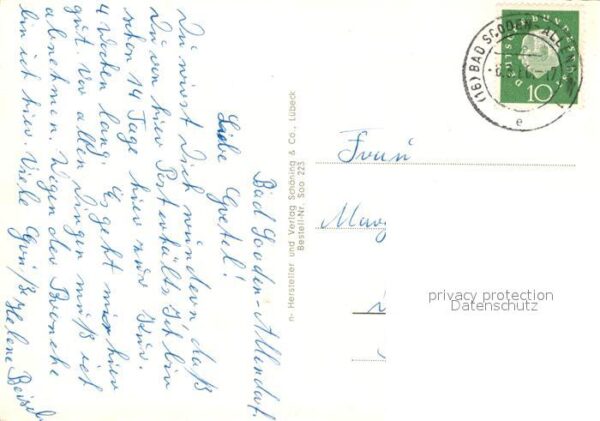 Bad Sooden-Allendorf.
Liebe Gretel!
Du wirst Dich wundern daß
Du von hier Post erhälts, Ich bin
schon 14 Tage hier zur Kur.
4 Wochen lang. Es geht mir hier
gut. Vor allen Dingen muß ich
abnehmen. Wegen der Bronche
bin ich hier. Viele Grüße Helene
n- Hersteller und Verlag Schöning & Co., Lübeck
Bestell-Nr. Soo 223
(16) BAD SOODEN-ALLEN
e
DEUTSCHE BUNDESPOST
10
Frau
privacy protection
Datenschutz